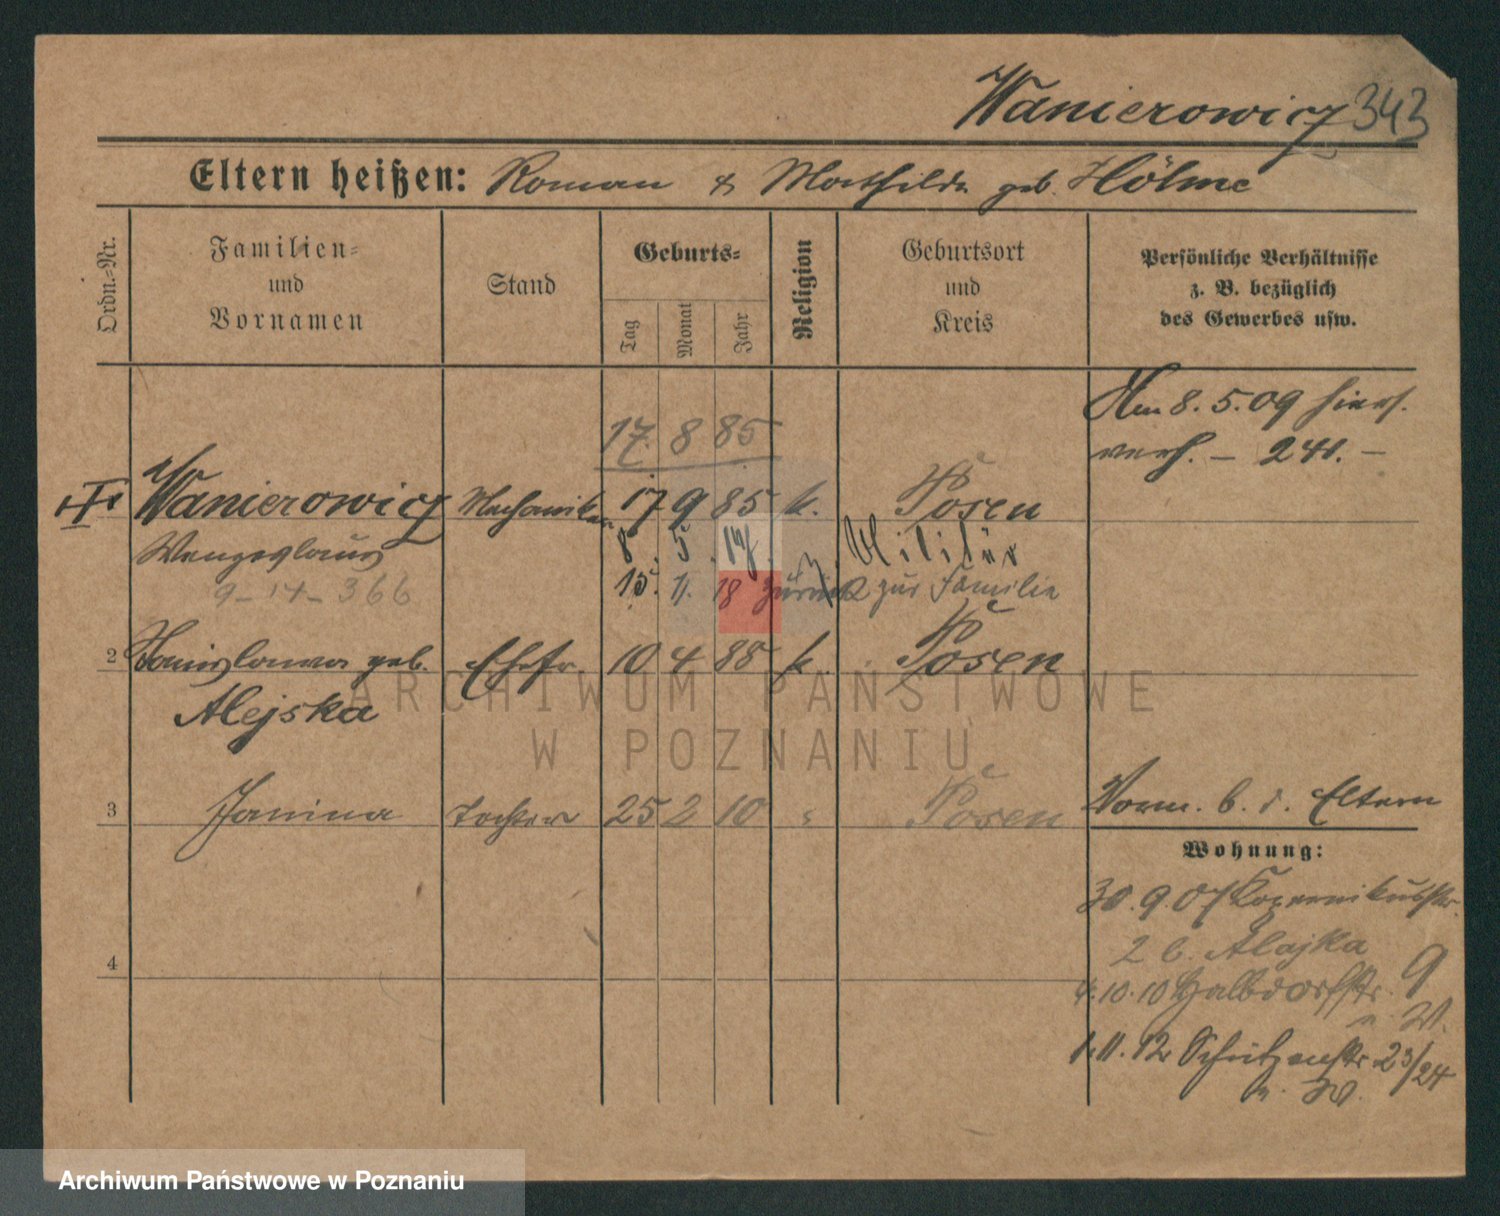 Wanierowicz 343
Eltern heißen: Roman & Mathilde geb. Höhne
Ordn.-Nr.
Familien-
und
Vornamen
Stand
Geburts-
Tag
Monat
Jahr
Religion
Geburtsort
und
Kreis
Persönliche Verhältnisse
z. B. bezüglich
des Gewerbes usw.
Am 8.5.09 hiers.
verh. – 241. –
17. 8 85
Wanierowicz Mechaniker 17 9 85 k. Posen
Wenzeslaus 8. 5. 14. z. Militär
9-14-366 15. 11. 18 zurück zur Familie
2 Stanislawa geb. Ehefr. 10 4 88 k. Posen
Alejska
3 Janina Tochter 25 2 10 Posen
Vorm. b. d. Eltern
Wohnung:
30.9.07 Kopernikusstr.
2 b. Alajska
4.10.10 Halbdorfstr. 9
n. W.
1.11.12 Schützenstr. 23/24
n. W.
4
ARCHIWUM PAŃSTWOWE
W POZNANIU
Archiwum Państwowe w Poznaniu